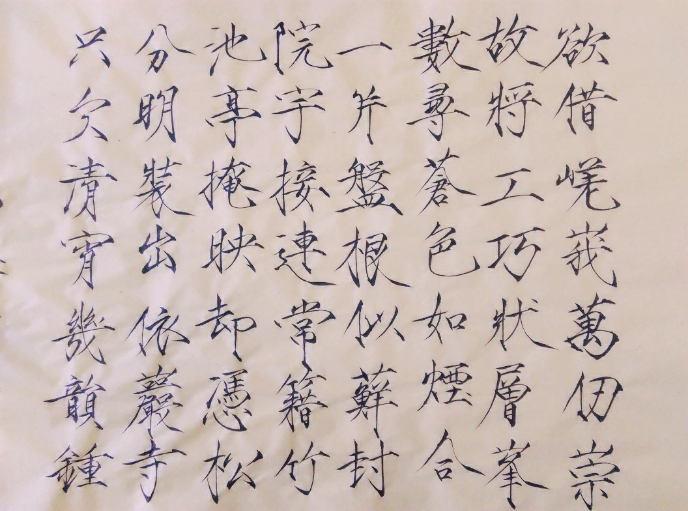 欲借嵯峩萬仞崇
故將工巧狀層峯
數尋蒼色如煙合
一片盤根似蘚封
院宇接連常籍竹
池亭掩映却憑松
分明裝出依巖寺
只欠清宵幾韻鍾